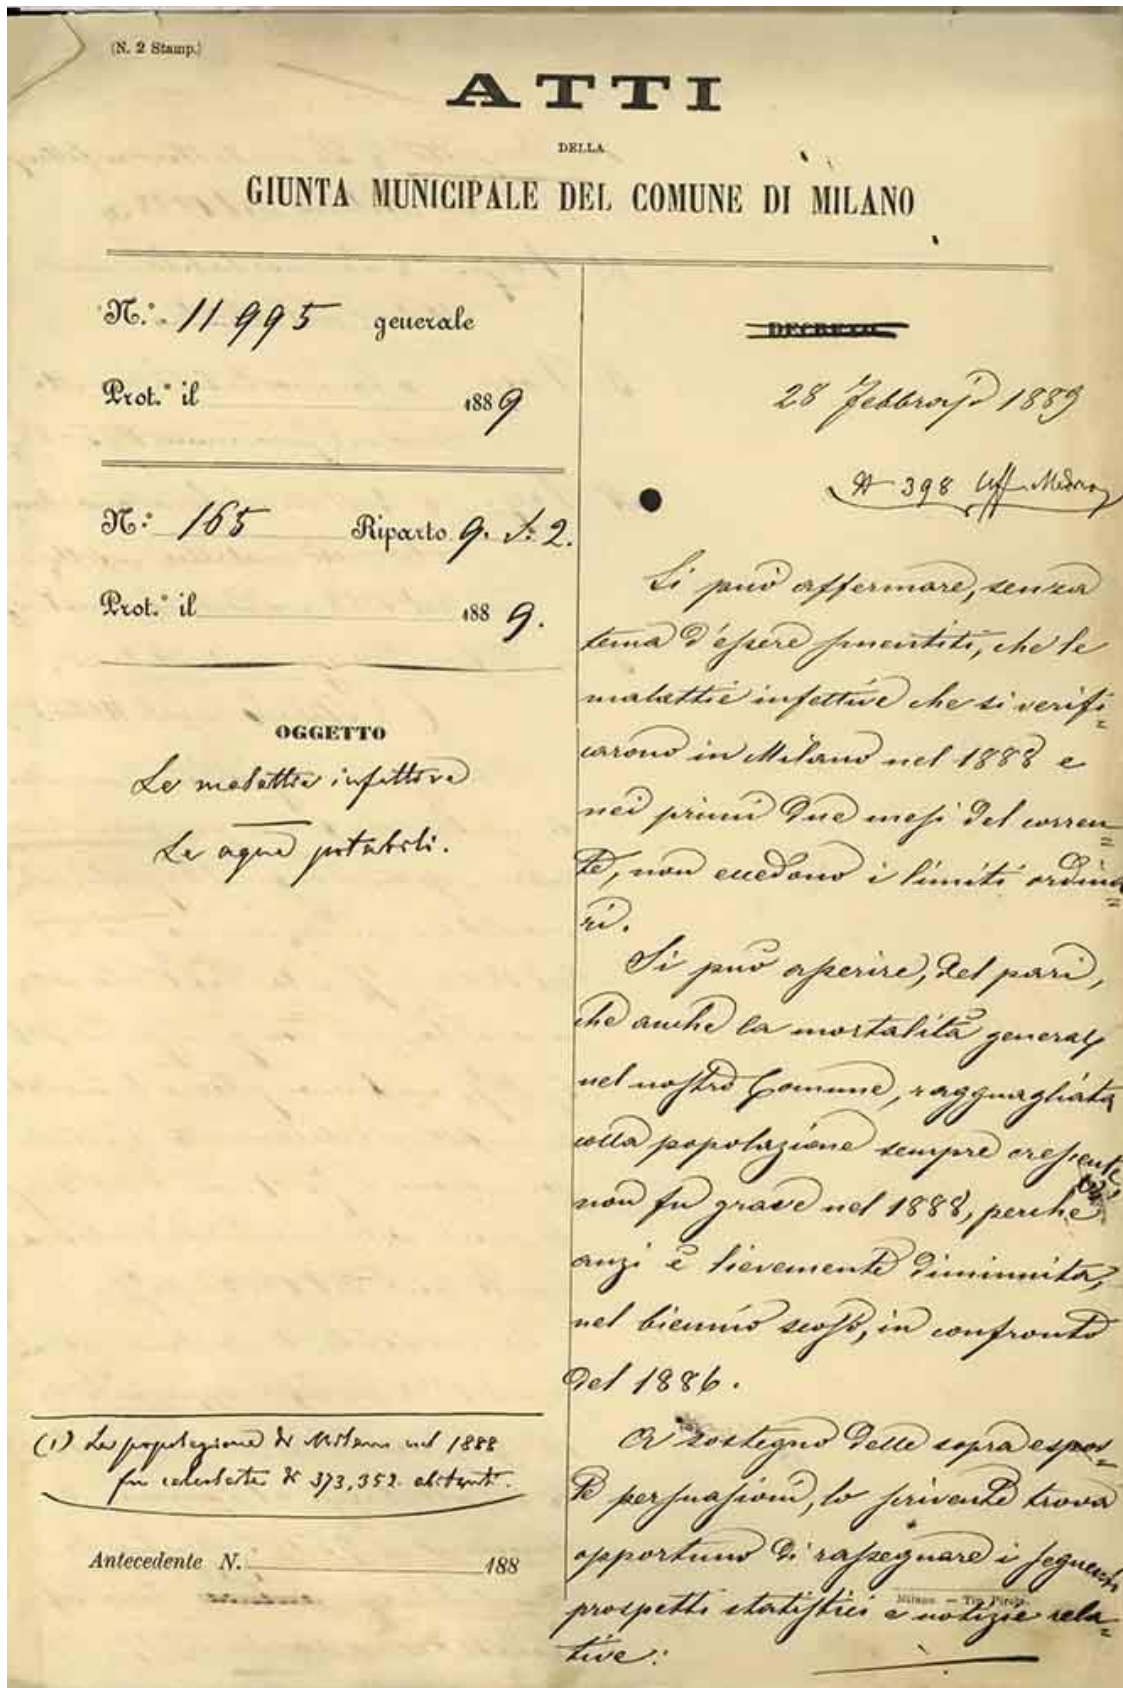 (N. 2 Stamp.)
ATTI
DELLA
GIUNTA MUNICIPALE DEL COMUNE DI MILANO
N.° 11995 generale
Prot.° il 1889
N.° 165 Riparto 9. S. 2.
Prot.° il 1889.
OGGETTO
Le malattie infettive
Le acque potabili.
(1) La popolazione di Milano nel 1888
fu calcolata di 373,352 abitanti.
Antecedente N. 188
DECRETO
28 Febbrajo 1889
N 398 Uff. Medico
Si può affermare, senza
tema d'essere smentiti, che le
malattie infettive che si verifi=
carono in Milano nel 1888 e
nei primi due mesi del corren=
te, non eccedono i limiti ordina=
ri.
Si può asserire, del pari,
che anche la mortalità generale
nel nostro Comune, ragguagliata
colla popolazione sempre crescente
(1)
non fu grave nel 1888, perchè
anzi è lievemente diminuita,
nel biennio scorso, in confronto
del 1886.
A sostegno delle sopra espos=
te persuasioni, lo scrivente trova
opportuno di rassegnare i seguenti
Milano. — Tip. Pirola.
prospetti statistici e notizie rela=
tive: